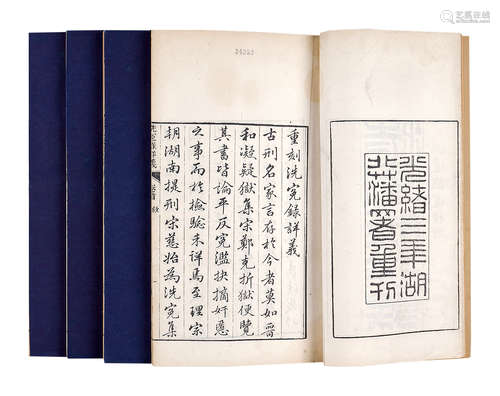 艺狐在线
光緒三年湖
北藩署重刊
重刻洗冤錄詳義
古刑名家言存於今者莫如晉
和凝疑獄集宋鄭克折獄便覽
其書皆論平反冤濫抉摘奸慝
之事而於檢驗未詳焉至理宗
朝湖南提刑宋慈始為洗冤集